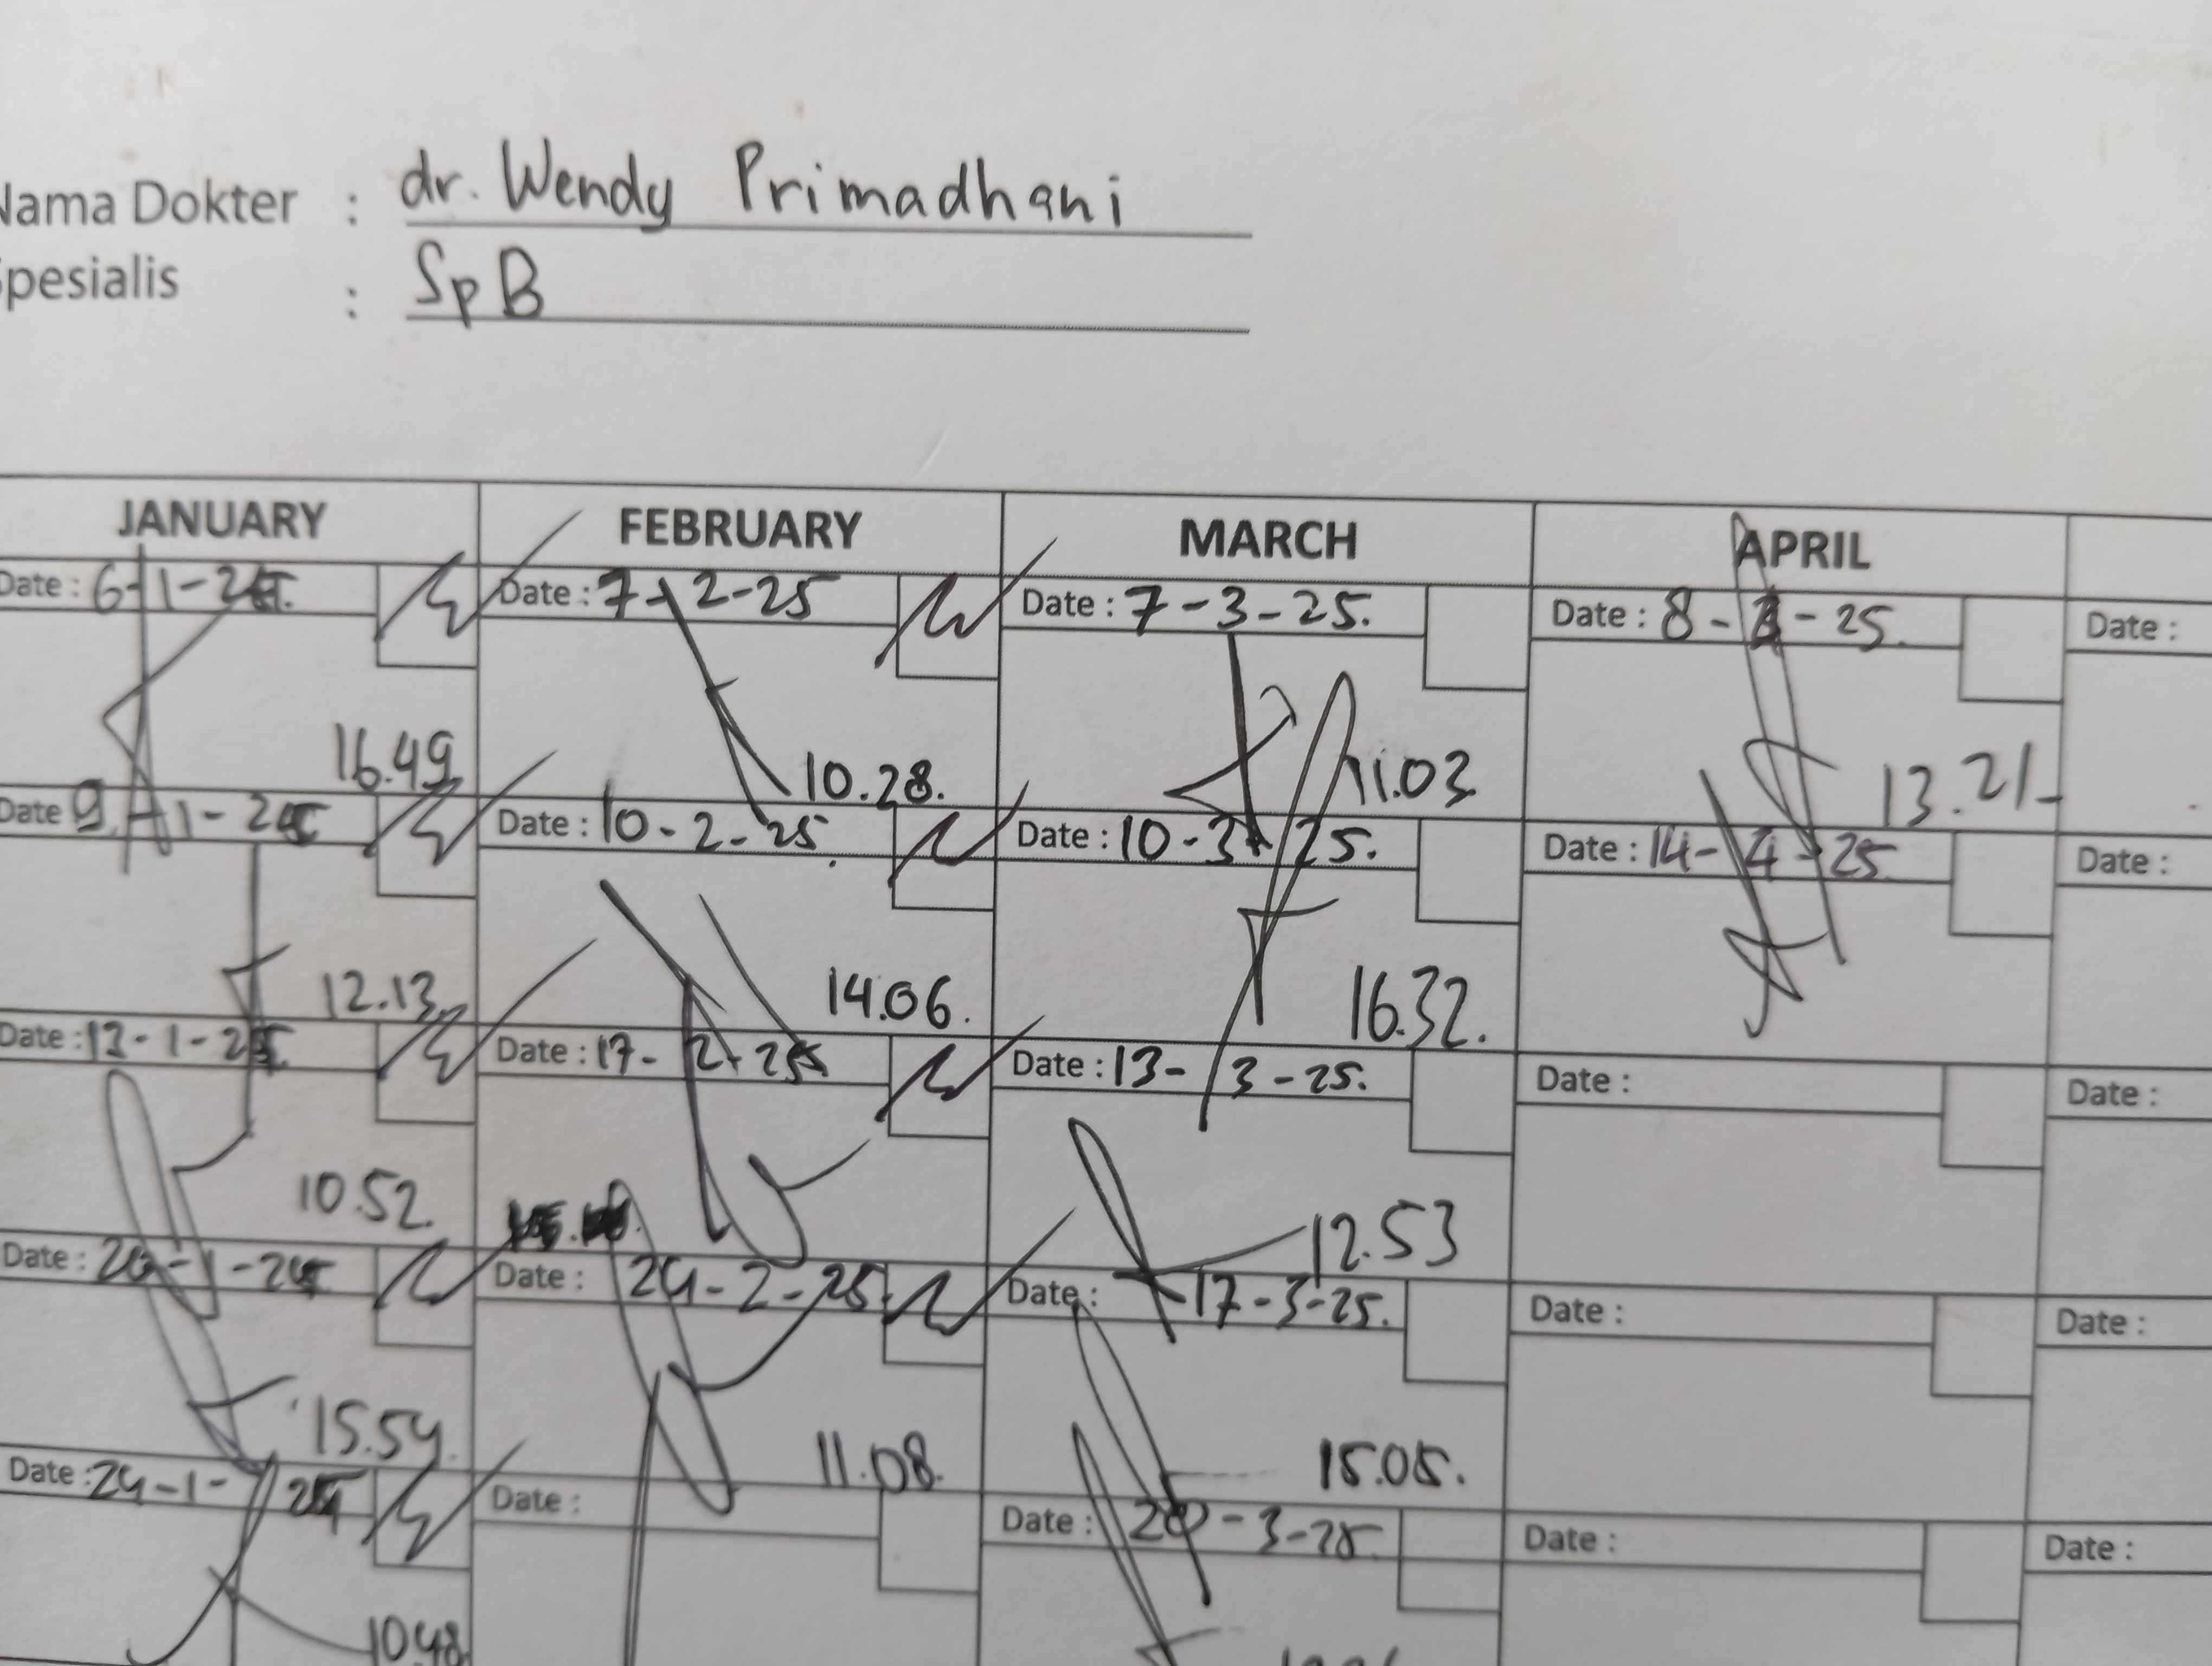 Nama Dokter : dr. Wendy Primadhani
Spesialis : SpB
JANUARY FEBRUARY MARCH APRIL
Date : 6-1-25. Date : 7-2-25 Date : 7-3-25. Date : 8-4-25. Date :
16.49 10.28. 11.03 13.21
Date 9-1-25 Date : 10-2-25. Date : 10-3-25. Date : 14-4-25 Date :
12.13 14.06. 16.32.
Date : 13-1-25 Date : 17-2-25 Date : 13-3-25. Date : Date :
10.52. 12.53
Date : 20-1-25 Date : 24-2-25 Date : 17-3-25. Date : Date :
15.54. 11.08. 15.05.
Date : 24-1-25 Date : Date : 20-3-25 Date : Date :
10.48